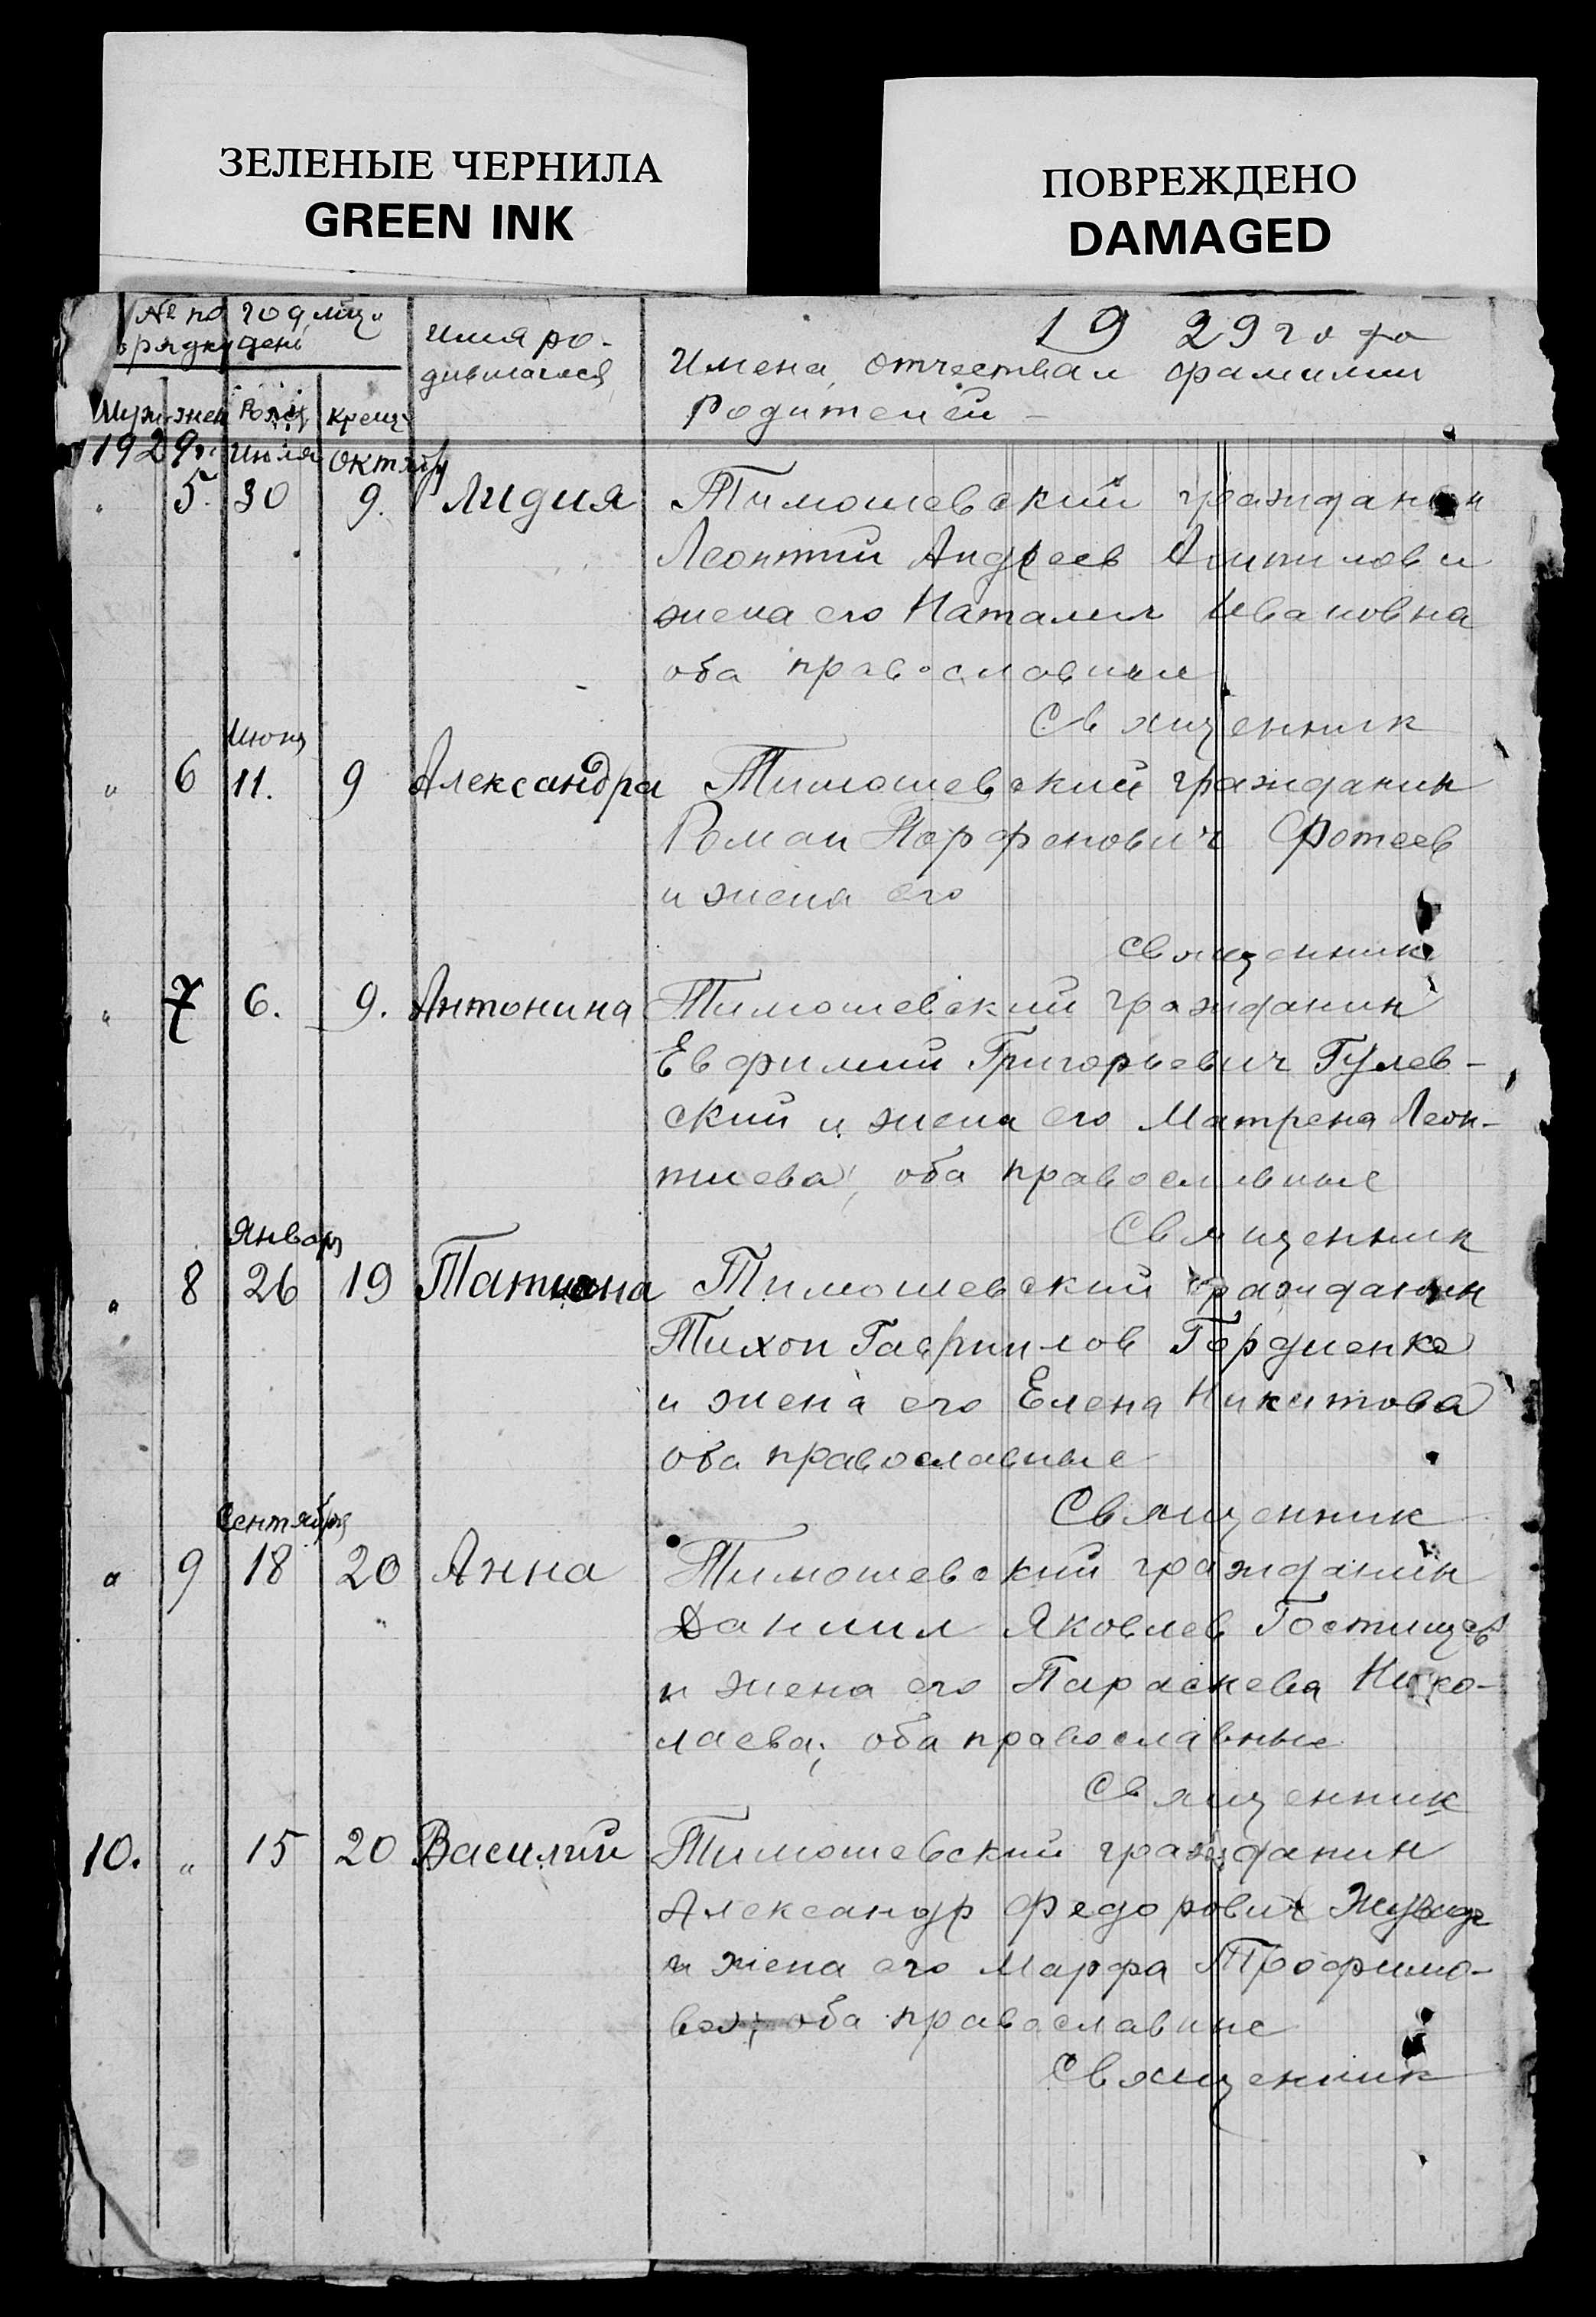 ЗЕЛЕНЫЕ ЧЕРНИЛА
GREEN INK
ПОВРЕЖДЕНО
DAMAGED
№ по год, мец. и
рядку день
имя ро-
дившагося
1929 года
Имена, отчества и фамилии
Родителей —
Муж. жен. Рожд. крещ.
1929 г. Июля Октябр
" 5. 30 9. Лидия Тимошевский гражданин
Леонтий Андреев и
жена его Наталия Ивановна
оба православные
Священник
Июня
" 6 11. 9 Александра Тимошевский гражданин
Роман Парфенович Фотеев
и жена его
священник
" 7 6. 9. Антонина Тимошевский гражданин
Евфимий Григорьевич Гулев-
ский и жена его Матрена Леон-
тиева, оба православные
Священник
Январ
" 8 26 19 Татиана Тимошевский гражданин
Тихон Гавриилов Гордиенко
и жена его Елена Никитова
оба православные
Священник
Сентября
" 9 18 20 Анна Тимошевский гражданин
Даниил Яковлев Гостищев
и жена его Параскева Нико-
лаева; оба православные
Священник
10. " 15 20 Василий Тимошевский гражданин
Александр Федорович
и жена его Марфа Трофимо-
ва; оба православные
Священник